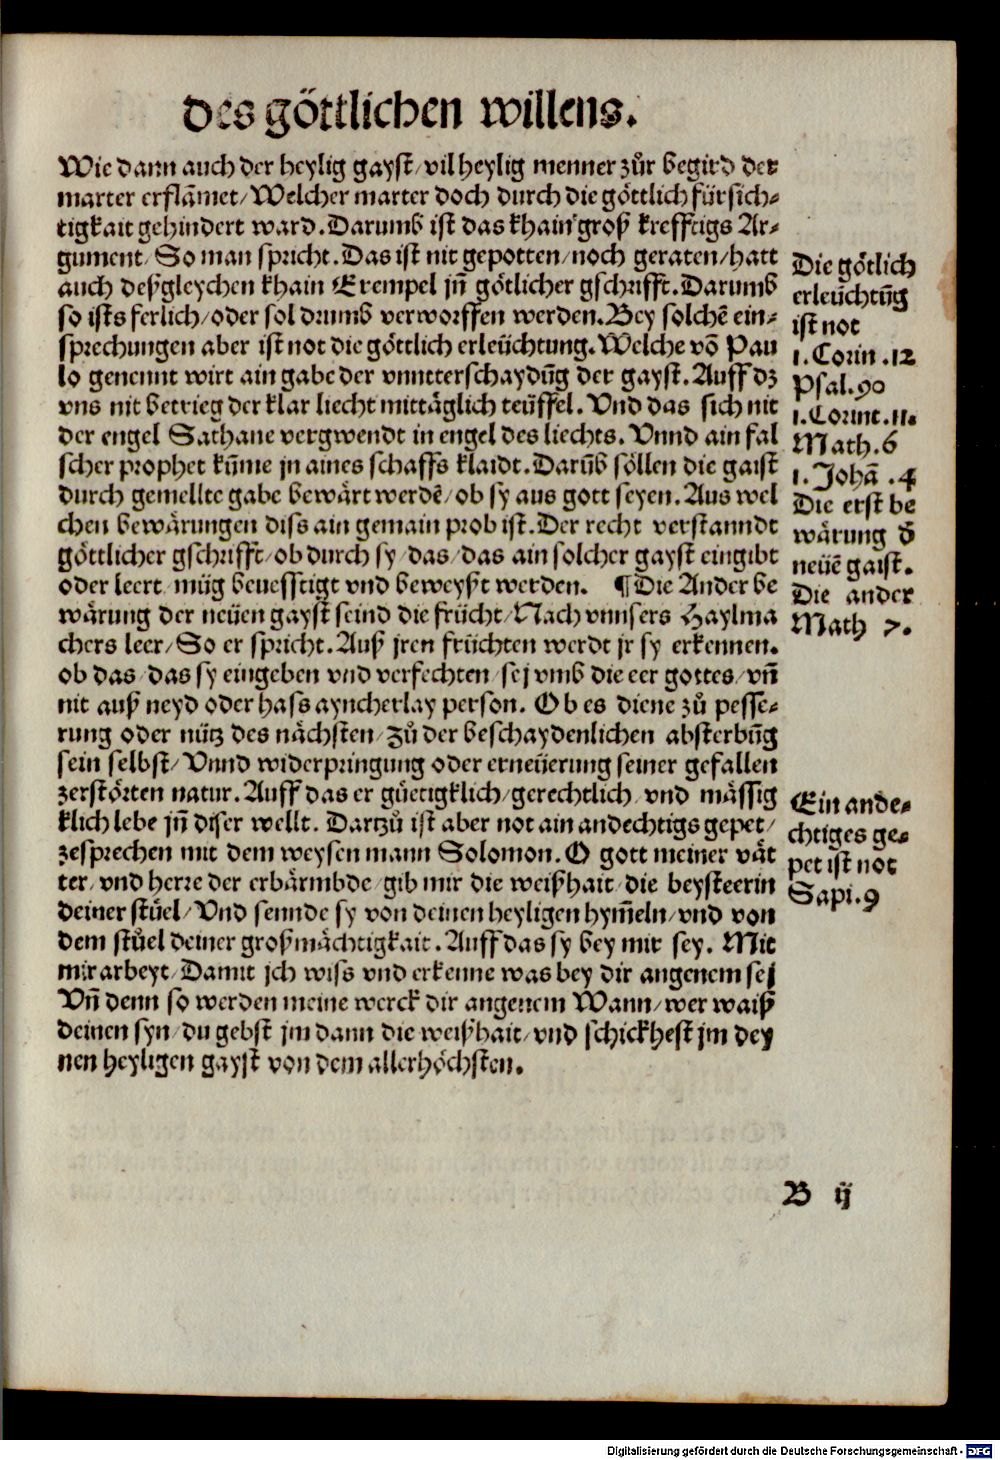 des göttlichen willens.
Wie dann auch der heylig gayst/ vil heylig menner zůr begird der
marter erflãmet/ Welcher marter doch durch die göttlich fürsich-
tigkait gehindert ward. Darumb ist das khain groß krefftigs Ar-
gument/ So man spricht. Das ist nit gepotten/ noch geraten/ hatt
auch deßgleychen khain Exempel jñ götlicher gschrifft. Darumb
so ists ferlich/ oder sol drumb verworffen werden. Bey solchẽ ein-
sprechungen aber ist not die göttlich erleüchtung. Welche võ Pau
lo genennt wirt ain gabe der vnntterschaydũg der gayst. Auff dz
vns nit betrieg der klar liecht mittäglich teüffel. Vnd das sich nit
der engel Sathane vergwendt in engel des liechts. Vnnd ain fal
scher prophet kũme jn aines schaffs klaidt. Darũb söllen die gaist
durch gemellte gabe bewärt werdẽ/ ob sy aus gott seyen. Aus wel
chen bewärungen diss ain gemain prob ist. Der recht verstanndt
göttlicher gschrifft/ ob durch sy/ das/ das ain solcher gayst eingibt
oder leert/ müg beuesstigt vnd beweyßt werden. ¶Die Ander be
wärung der neüen gayst seind die frücht/ Nach vnnsers Haylma
chers leer/ So er spricht. Auß jren früchten werdt jr sy erkennen.
ob das/ das sy eingeben vnd verfechten/ sej vmb die eer gottes/ vñ
nit auß neyd oder hass ayncherlay person. Ob es diene zů pesse-
rung oder nütz des nächsten/ Zů der beschaydenlichen absterbũg
sein selbst/ Vnnd widerpringung oder erneüerung seiner gefallen
zerstörten natur. Auff das er güetigklich/ gerechtlich/ vnd mässig
klich lebe jñ diser wellt. Dartzů ist aber not ain andechtigs gepet/
zesprechen mit dem weysen mann Solomon. O gott meiner vät
ter/ vnd herre der erbärmbde/ gib mir die weißhait/ die beysteerin
deiner stůel/ Vnd sennde sy von deinen heyligen hym̃eln/ vnd von
dem stůel deiner großmächtigkait. Auff das sy bey mir sey. Mit
mir arbeyt/ Damit jch wiss vnd erkenne was bey dir angenem sej
Vñ denn so werden meine werck dir angenem Wann/ wer waiß
deinen syn/ du gebst jm dann die weißhait/ vnd schickhest jm dey
nen heyligen gayst von dem allerhöchsten.
Die götlich
erleüchtũg
ist not
1. Corin .12
Psal.90
1. Corint.11.
Math.6
1. Johã .4
Die erst be
wärung d̃
neüẽ gaist.
Die ander
Math 7.
Ein ande-
chtiges ge-
pet ist not
Sapi.9
B ij
Digitalisierung gefördert durch die Deutsche Forschungsgemeinschaft - DFG